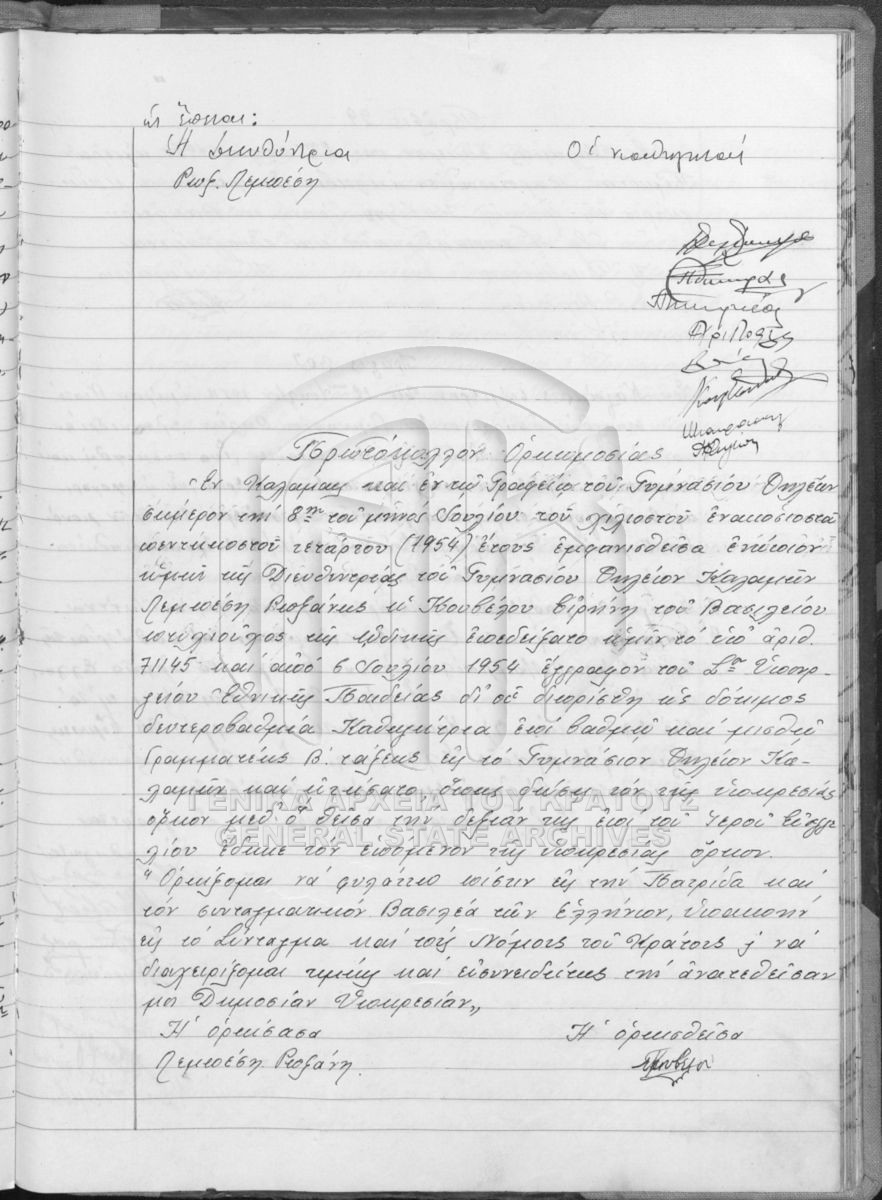 ὡς ἕπεται:
Ἡ Διευθύντρια Οἱ καθηγηταί
Ρωξ. Λεμπέση
Πρωτόκολλον Ὁρκωμοσίας
Ἐν Καλάμαις καὶ ἐν τῷ Γραφείῳ τοῦ Γυμνασίου Θηλέων
σήμερον τὴν 8ην τοῦ μηνὸς Ἰουλίου τοῦ χιλιοστοῦ ἐνακοσιοστοῦ
πεντηκοστοῦ τετάρτου (1954) ἔτους ἐμφανισθεῖσα ἐνώπιον
ἡμῶν τῆς Διευθυντρίας τοῦ Γυμνασίου Θηλέων Καλαμῶν
Λεμπέση Ρωξάνης ἡ Κουβέλου Εἰρήνη τοῦ Βασιλείου
πτυχιοῦχος τῆς ᾠδικῆς ἐπεδείξατο ἡμῖν τὸ ὑπ' ἀριθ.
71145 καὶ ἀπὸ 6 Ἰουλίου 1954 ἔγγραφον τοῦ Σ. Ὑπουρ-
γείου Ἐθνικῆς Παιδείας δι' οὗ διωρίσθη ὡς δόκιμος
δευτεροβαθμία Καθηγήτρια ἐπὶ βαθμῷ καὶ μισθῷ
Γραμματέως Β. τάξεως εἰς τὸ Γυμνάσιον Θηλέων Κα-
λαμῶν καὶ ᾐτήσατο ὅπως δώσῃ τὸν τῆς ὑπηρεσίας
ὅρκον μεθ' ὃ θεῖσα τὴν δεξιάν της ἐπὶ τοῦ Ἱεροῦ Εὐαγγε-
λίου ἔδωκε τὸν ἑπόμενον τῆς ὑπηρεσίας ὅρκον.
"Ὁρκίζομαι νὰ φυλάττω πίστιν εἰς τὴν Πατρίδα καὶ
τὸν συνταγματικὸν Βασιλέα τῶν Ἑλλήνων, ὑπακοὴν
εἰς τὸ Σύνταγμα καὶ τοὺς Νόμους τοῦ Κράτους, νὰ
διαχειρίζομαι τιμίως καὶ εὐσυνειδήτως τὴν ἀνατεθεῖσαν
μοι Δημοσίαν Ὑπηρεσίαν„
Ἡ ὁρκίσασα Ἡ ὁρκισθεῖσα
Λεμπέση Ρωξάνη.
ΓΕΝΙΚΑ ΑΡΧΕΙΑ ΤΟΥ ΚΡΑΤΟΥΣ
GENERAL STATE ARCHIVES